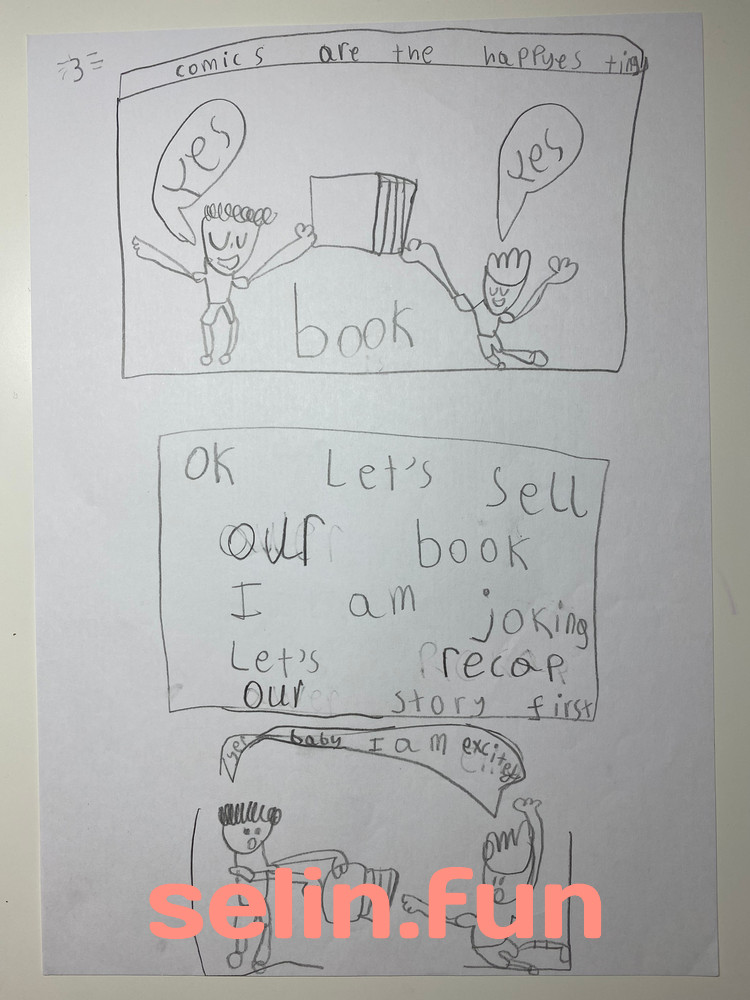 =3=
comics are the happyes ting
yes
yes
book
OK Let's sell
our book
I am joking
Let's recap
our story first
yes baby I am excited
selin.fun